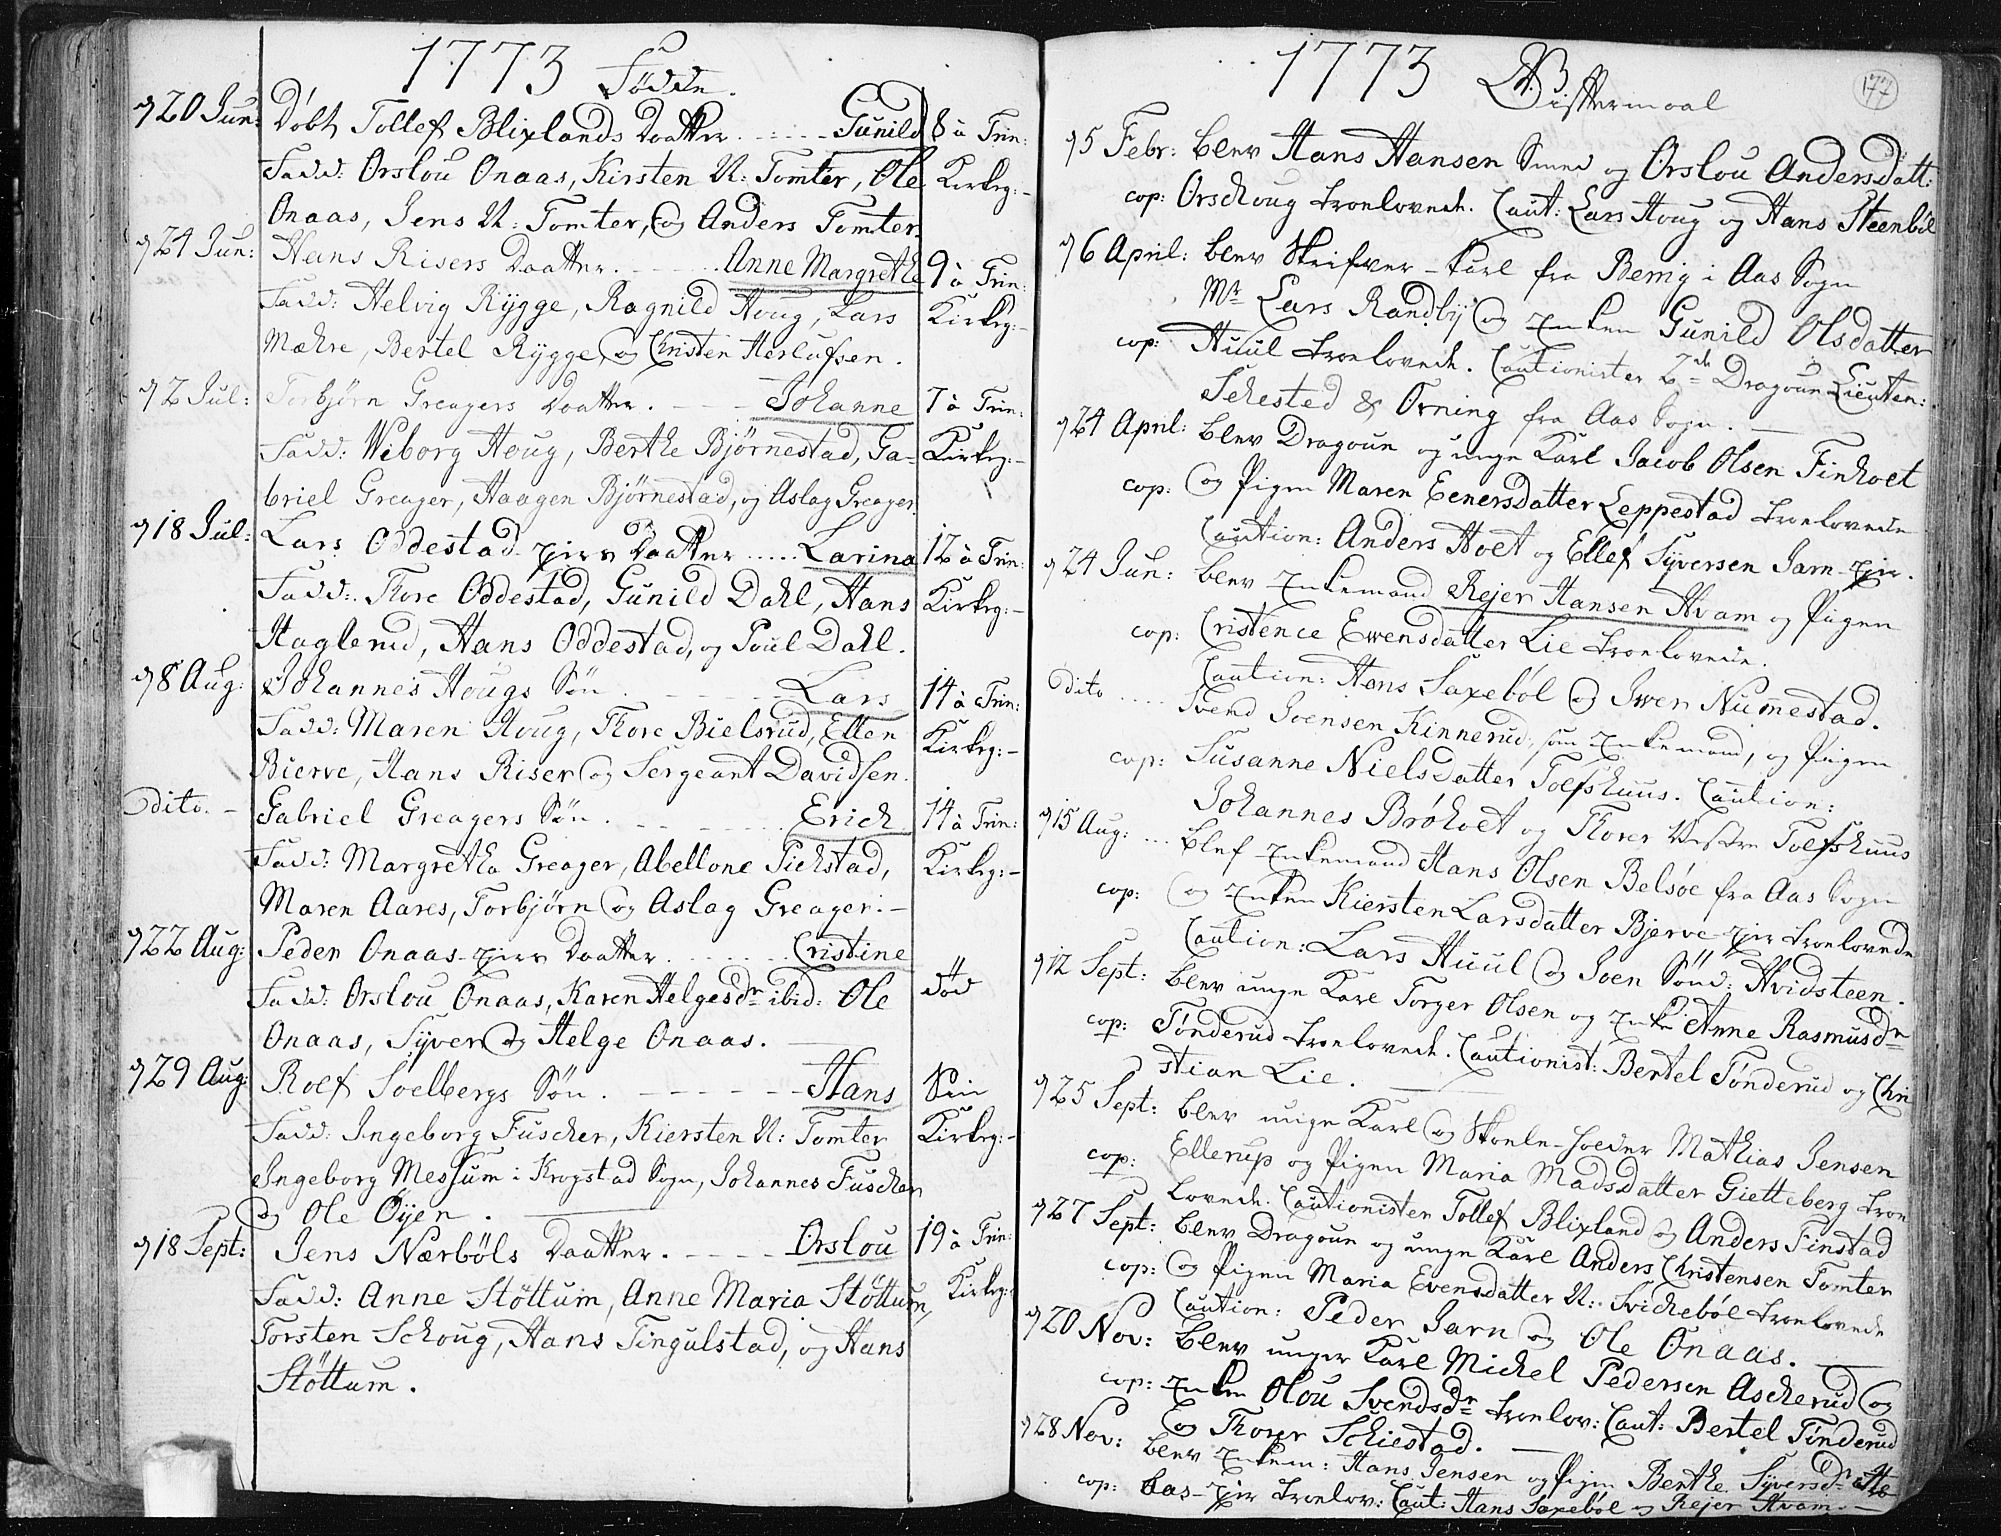 1773 Fødde.
d 20 Jun: Døbt Tollef Blixlands Daatter. Gunild 8 à Trin:
Fadd: Orslou Onaas, Kirsten N: Tomter, Ole Kirkeg:
Onaas, Jens N: Tomter, og Anders Tomter.
d 24 Jun: Hans Risers Daatter. Anne Margrethe 9 à Trin:
Fadd: Helvig Rygge, Ragnild Houg, Lars Kirkeg:
Mæhre, Bertel Rygge, og Christen Herlufsen.
d 2 Jul: Torbjørn Greagers Daatter. Johanne 7 à Trin:
Fadd: Wiborg Houg, Berthe Bjørnestad, Ga- Kirkeg:
briel Greager, Haagen Bjørnestad, og Aslag Greager.
d 18 Jul: Lars Oddestad Daatter Larina 12 à Trin:
Fadd: Thore Oddestad, Gunild Dahl, Hans Kirkeg:
Haglerud, Hans Oddestad, og Poul Dahl.
d 8 Aug: Johannes Hougs Søn Lars 14 à Trin:
Fadd: Maren Houg, Thore Bielsrud, Ellen Kirkeg:
Bierve, Hans Riser og Sergeant Davidsen.
Dito. Gabriel Greagers Søn. Erich 14 à Trin:
Fadd: Margrethe Greager, Abellone Pichstad, Kirkeg:
Maren Aares, Torbjørn og Aslag Greager.
d 22 Aug: Peder Onaas Daatter. Cristine
Fadd: Orslou Onaas, Karen Helgesdr ibid: Ole død
Onaas, Syver og Helge Onaas.
d 29 Aug: Rolf Soelbergs Søn. Hans
Fadd: Ingeborg Fuscher, Kiersten N: Tomter Kirkeg:
Ingeborg Messum i Krogstad Sogn, Johannes Fuscher
og Ole Øyen.
d 18 Sept: Jens Nærbøls Daatter. Orslou 19 à Trin:
Fadd: Anne Støttum, Anne Maria Støttum, Kirkeg:
Torsten Schoug, Hans Tingulstad, og Hans
Støttum.
177
1773 Giftermaal
d 5 Febr: blev Hans Hansen Smed og Orslou Andersdatt:
cop: Orschoug troelovede. Caut: Lars Houg og Hans Steenbøl
d 6 April: blev Skrifver-karl fra Berrig i Aas Sogn
Mr Lars Randby og Enken Gunild Olsdatter
cop: Huul troelovede. Cautionister 2de Dragoun Lieuten:
Sehested & Orning fra Aas Sogn.
d 24 April: blev Dragoun og unge Karl Jacob Olsen Finholt
cop: og Pigen Maren Eenersdatter Leppestad troelovede
Caution: Anders Hoet og Ellef Syversen Sarn
d 24 Jun: blev Enkemand Rejer Hansen Hvam og Pigen
cop: Cristence Ewensdatter Lie troelovede.
Caution: Hans Saxebøl og Iwer Nummestad.
Dito Svend Joensen Kinnerud, som Enkemand, og Pigen
cop: Susanne Nielsdatter Toefshuus. Caution:
Johannes Brøhoet og Thorer Vestre Toefshuus
d 15 Aug: blef Enkemand Hans Olsen Belsøe fra Aas Sogn
cop: og Enken Kiersten Larsdatter Bjerve troelovede
Caution: Lars Huul og Joen Sønd: Hvidsteen.
d 12 Sept: blev unge Karl Torger Olsen og Enke Anne Rasmusdr
cop: Tønderud troelovede. Cautionist: Bertel Tønderud og Chri
stian Lie.
d 25 Sept: blev unge Karl og Skoele-hoeder Mathias Jensen
cop: Ellerup og Pigen Maria Madsdatter Gietteberg troe
lovede. Cautionister Tollef Blixland og Anders Finstad
d 27 Sept: blev Dragoun og unge Karl Anders Christensen Tomter
cop: og Pigen Maria Evensdatter N: Svickebøl troelovede
Caution: Peder Sarn og Ole Onaas.
d 20 Nov: blev unger Karl Michel Pedersen Ascherud og
cop: Enken Olou Svendsdr troelov: Caut: Bertel Tønderud
og Thorer Schiestad.
d 28 Nov: blev Enkem: Hans Jensen og Pigen Berthe Syversd
cop: troelov: Caut: Hans Saxebøl og Rejer Hvam.